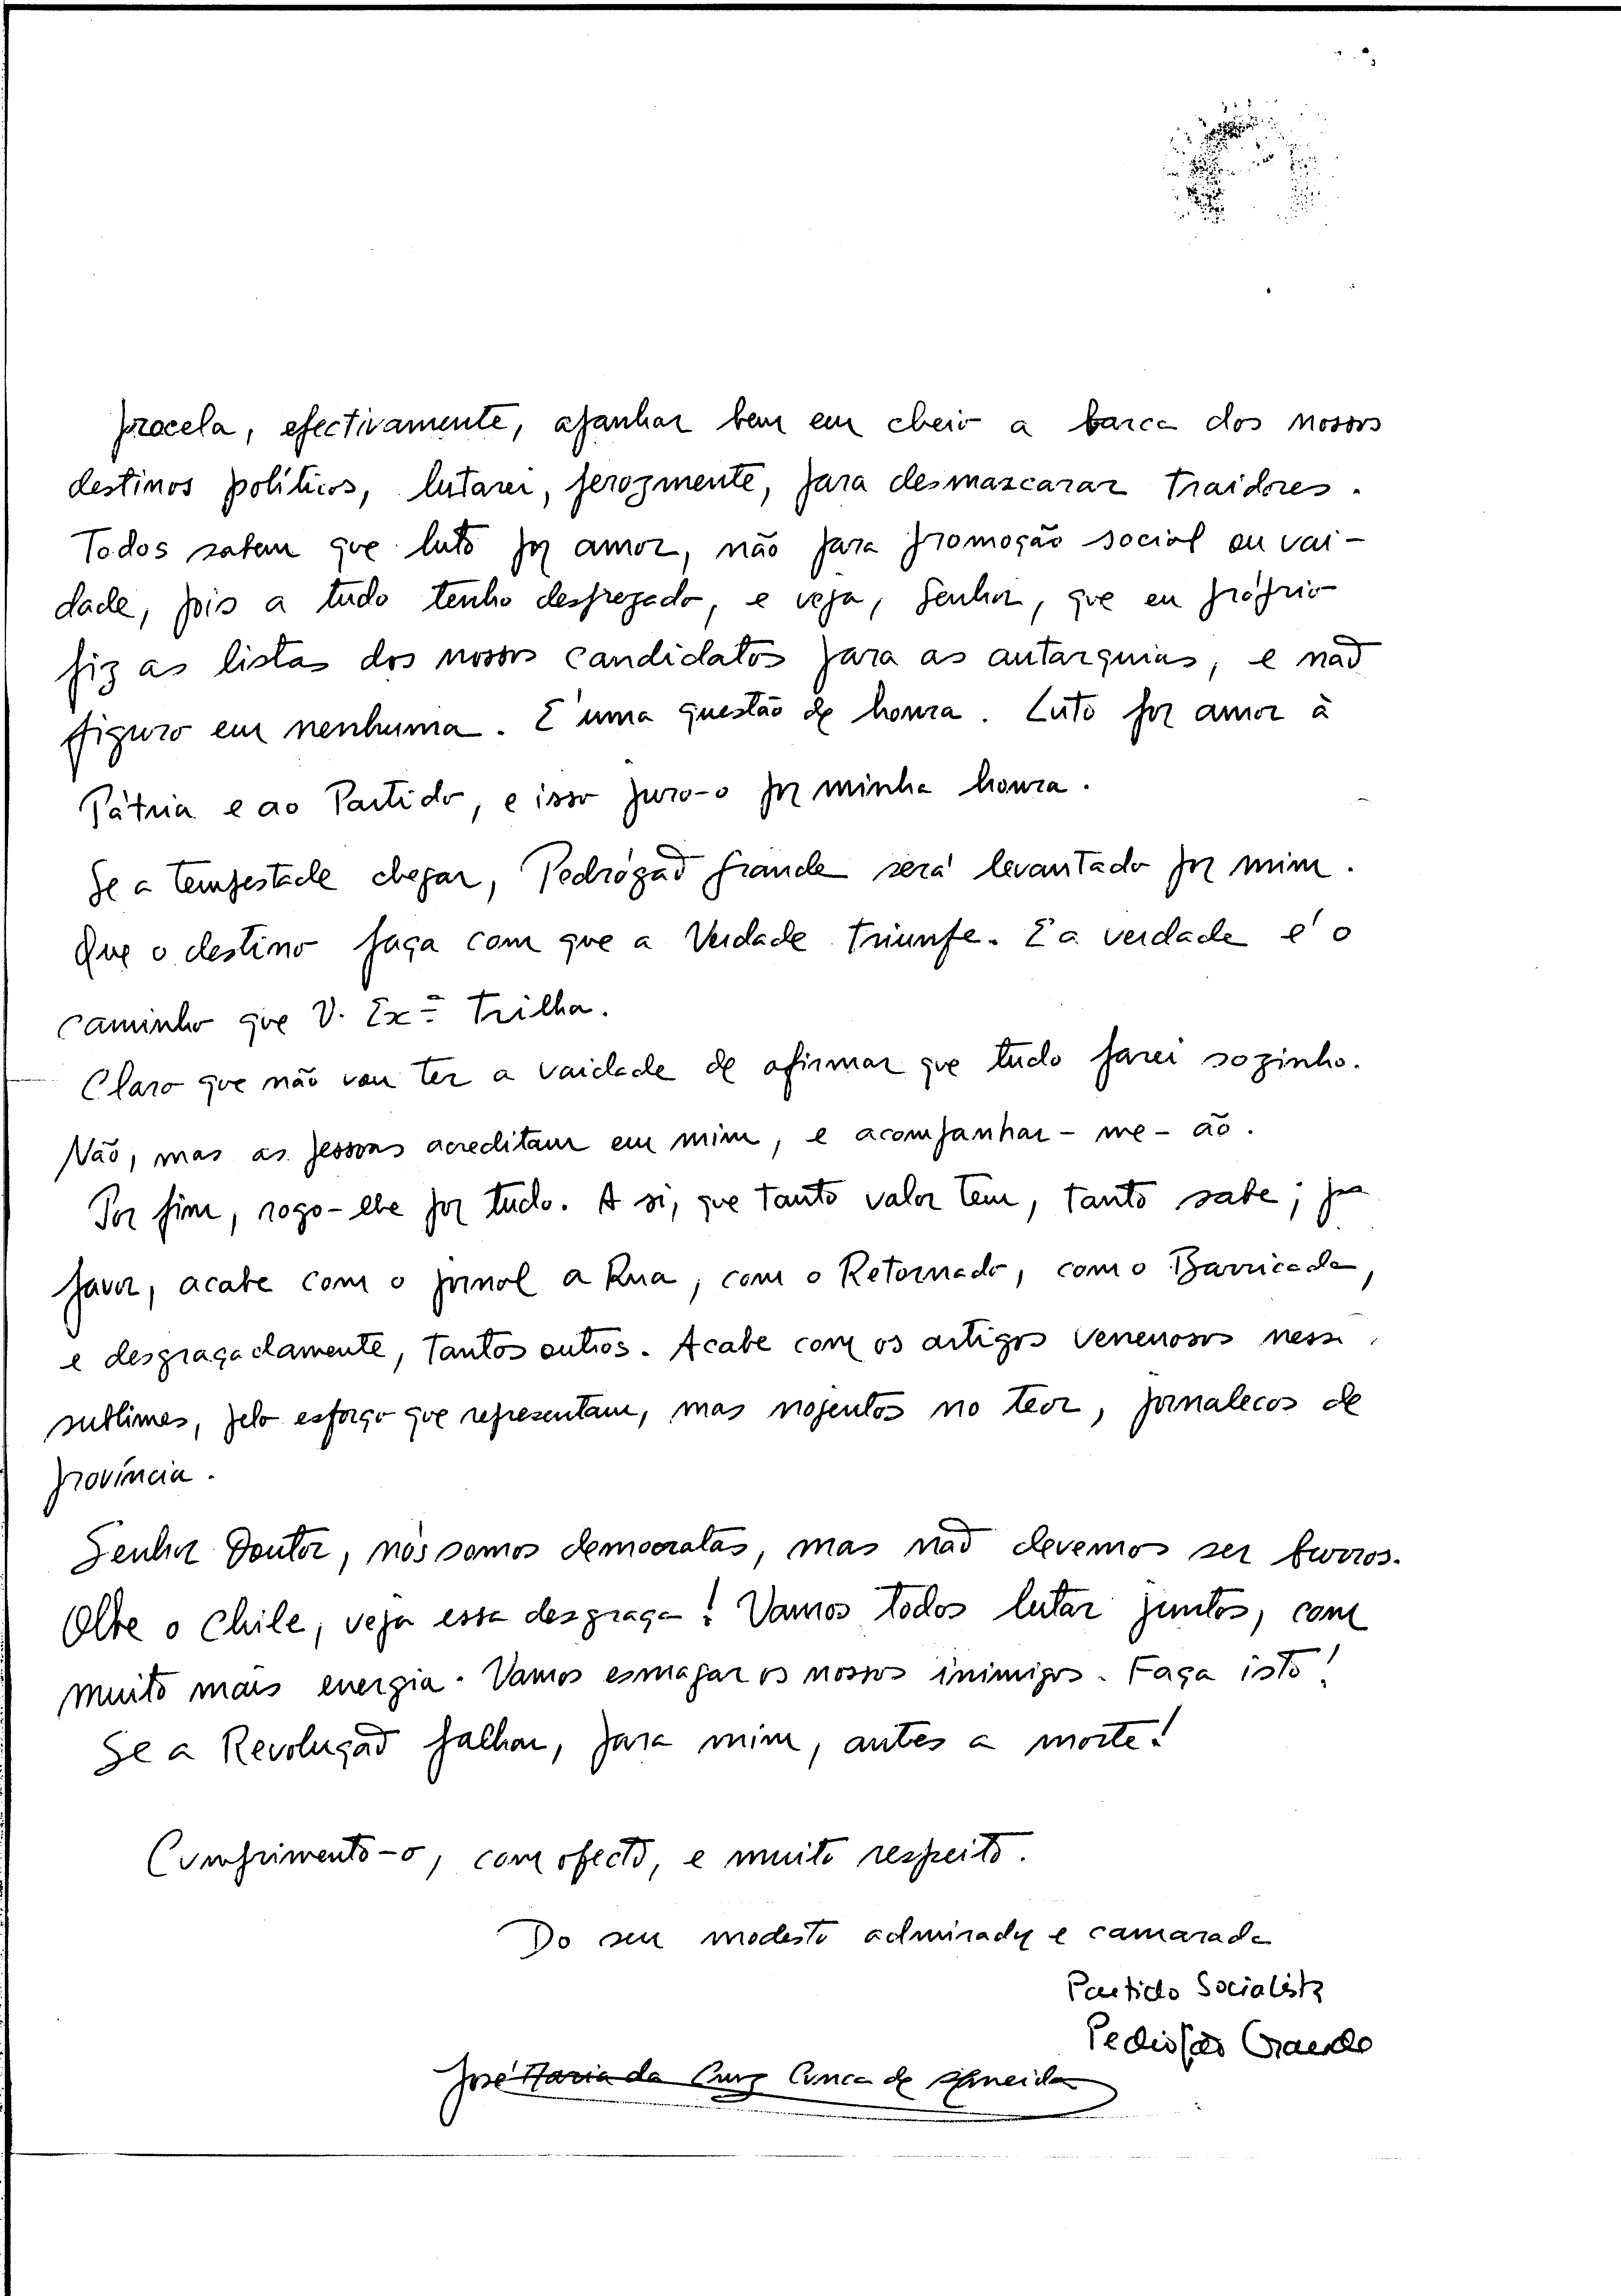 procela, efectivamente, apanhar bem em cheio a barca dos nossos
destinos políticos, lutarei, ferozmente, para desmascarar traidores.
Todos sabem que luto por amor, não para promoção social ou vai-
dade, pois a tudo tenho desprezado, e veja, Senhor, que eu próprio
fiz as listas dos nossos candidatos para as autarquias, e não
figuro em nenhuma. É uma questão de honra. Luto por amor à
Pátria e ao Partido, e isso juro-o por minha honra.
Se a tempestade chegar, Pedrógão Grande será levantado por mim.
Que o destino faça com que a Verdade triunfe. E a verdade é o
caminho que V. Exª trilha.
Claro que não vou ter a vaidade de afirmar que tudo farei sozinho.
Não, mas as pessoas acreditam em mim, e acompanhar-me-ão.
Por fim, rogo-lhe por tudo. A si, que tanto valor tem, tanto sabe; por
favor, acabe com o jornal a Rua, com o Retornado, com o Barricada,
e desgraçadamente, tantos outros. Acabe com os artigos venenosos nesse
sublimes, pelo esforço que representam, mas nojentos no teor, jornalecos de
província.
Senhor Doutor, nós somos democratas, mas não devemos ser burros.
Olhe o Chile, veja essa desgraça! Vamos todos lutar juntos, com
muito mais energia. Vamos esmagar os nossos inimigos. Faça isto!
Se a Revolução falhar, para mim, antes a morte!
Cumprimento-o, com afecto, e muito respeito.
Do seu modesto admirador e camarada
Partido Socialista
Pedrógão Grande
José Maria da Cruz Cunca de Almeida